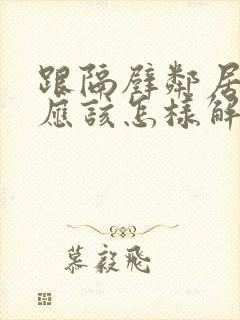 跟隔壁鄰居
應該怎樣解
慕毅飛